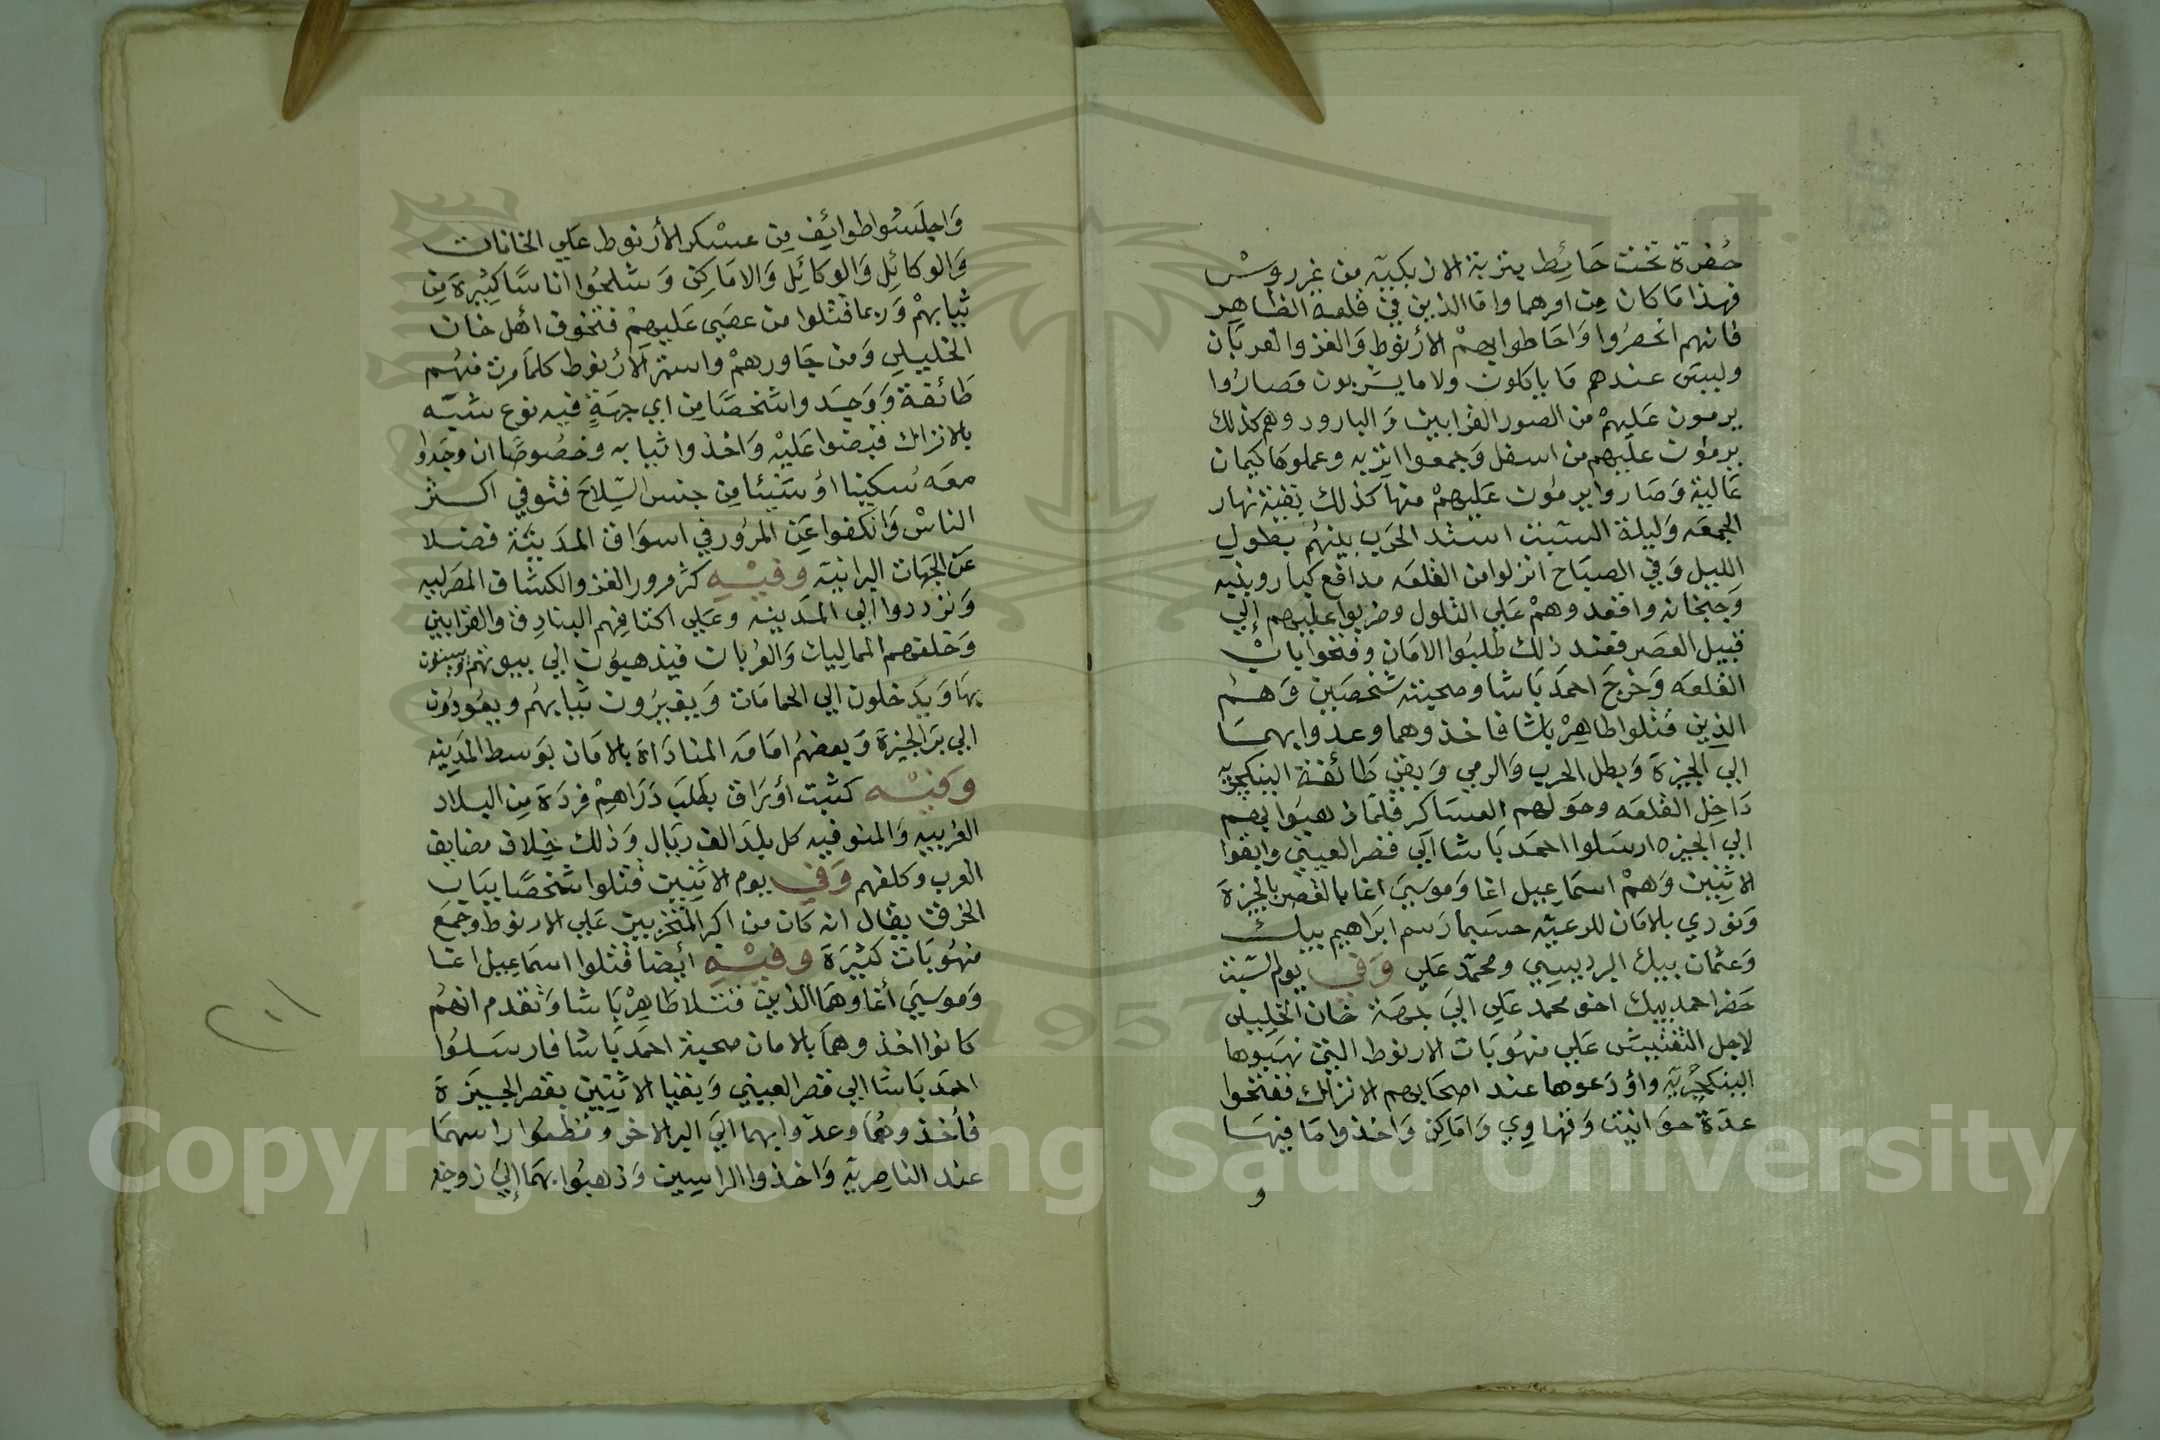 حُفرة تحت حَائِط بتربة الازبكيه من غير روس
فهذا مَا كان مِن امرهما واما الذين في قلعة الظاهِر
فانهم انحصرُوا وَاحَاطوا بهمْ الأرنوط وَالغز والعربَان
وليسَ عندهم مَا ياكلون ولا ما يشربون فصَارُوا
يرمون عَليهمْ من الصور القرابين وَالبارود وهم كذلك
يرمُون عليهم من اسفل وَجمعوا اتربه وعملوها كيمان
عَالية وَصَاروا يرمُون عَليهمْ منهَا كذلك بقية نهار
الجمعَه وَليلة السَبت اشتد الحَرب بينهُم بطول
الليل وَفي الصبَاح انزلوا من القلعَه مدافع كبار وبنبه
وَجبخانه واقعدوهمْ عَلي التلول وضربوا عليهم إلي
قبيل العصَر فعند ذلك طلبُوا الامَان وفتحوا بابْ
القلعَه وَخرجَ احمدَ بَاشا وصحبته شخصَين وَهُم
الذِين قتلوا طاهِرْ باشا فاخذوهما وعدوا بهمَا
الي الجيزة وَبطل الحرب وَالرمي وَبقي طَائفة الينكجريه
دَاخل القلعَه وحَولهم العسَاكر فلمَا ذهبوا بهم
الي الجيزه ارسَلوا احمدَ بَاشا الي قصر العيني وابقوا
الاثنِين وَهمْ اسمَاعِيل اغا وَموسَي اغا بالقصر بالجيزة
وَنودي بلامَان للرعيّه حسَبما رَسم ابرَاهيم بيك
وَعثمان بيك البرديسي ومحمَد عَلي وَفي يوم السَبت
حَضر احمد بيك اخو محمد عَلي اليَ جهَة خان الخليلي
لاجل التفتيش عَلي منهُوبَات الارنوط التي نهَبوها
الينكجريَه واوْدَعوها عند اصحَابهم الاتراك ففتحوا
عدَة حوَانيت وَقهاوِي وَامَاكِن وَاخذوا مَا فيهَا
و
وَاجلسُوا طوائِف مِن عسْكر الأرنوط عَلي الخانات
وَالوكائِل وَالوكائِل وَالامَاكِن وَشلحُوا اناسًا كثيرة مِن
ثيَابهمْ وَربما قتلوا من عصَي عَليهمْ فتخوف أهل خان
الخليلي وَمن جَاورهمْ واستمرَ الأرنوط كلمَا مرت منهُم
طَائفة وَوَجَدوا شخصَا مِن ايْ جهَةٍ فيه نوع شبَه
بالاتراك قبَضوا عَليْه وَاخذوا ثيابه وخصُوصًا ان وجَدوا
معَه سُكينا اوْ شَيئا مِن جنس السِّلاحَ فتوفي اكثر
الناسْ وَانكفوا عَن المرُور في اسوَاق المدَينَة فضلا
عَن الجَهات البرانية وفيْه كثر مرور الغز والكشاف المصَرليه
وَترددوا الي المدَينه وعَلي اكتافِهم البنادِق والقرَابين
وَخلفهم المماليك وَالعُربان فيذهبُون الي بيوتهم ويبيتون
بهَا وَيَدخلون الي الحمامَات وَيغيرُون ثيَابهُم ويعُودُون
الي برَ الجيزة وَبعضهُم امَامه المنادَاة بالامَان بوَسط المدَينه
وَفيْه كتبت أوْرَاق بطلَب دَرَاهِمْ فردَة مِن البلاد
الغربيه وَالمنوفيه كل بلدَ الف ريَال وَذلك خِلاف مضايف
العَرب وكلفهم وَفي يوم الاثنِين قتلوا شخصًا بيَاب
الخرق يقال انه كَان من اكبر المتحزبين عَلي الارنوط وجَمع
منهُوبَات كثيرَة وَفيْهِ أيضا قتلوا اسمَاعِيل اغا
وَموسَي أغا وهمَا الذين قتلا طَاهِرْ بَاشا وَتقدم انهُم
كانوا اخذوهمَا بالامَان صحبة احمدَ بَاشا فارسَلوُا
احمدَ بَاشا الي قصر العيني وَبقيا الاثنِين بقصر الجيزة
فأخذوهُمَا وعدّوا بهما اليَ البر الاخر وقطعُوا راسهمَا
عند الناصِريّه وَاخذوا الراسِين وَذهبُوا بهمَا إليَ زوجة
٢٠١
Copyright © King Saud University
1957